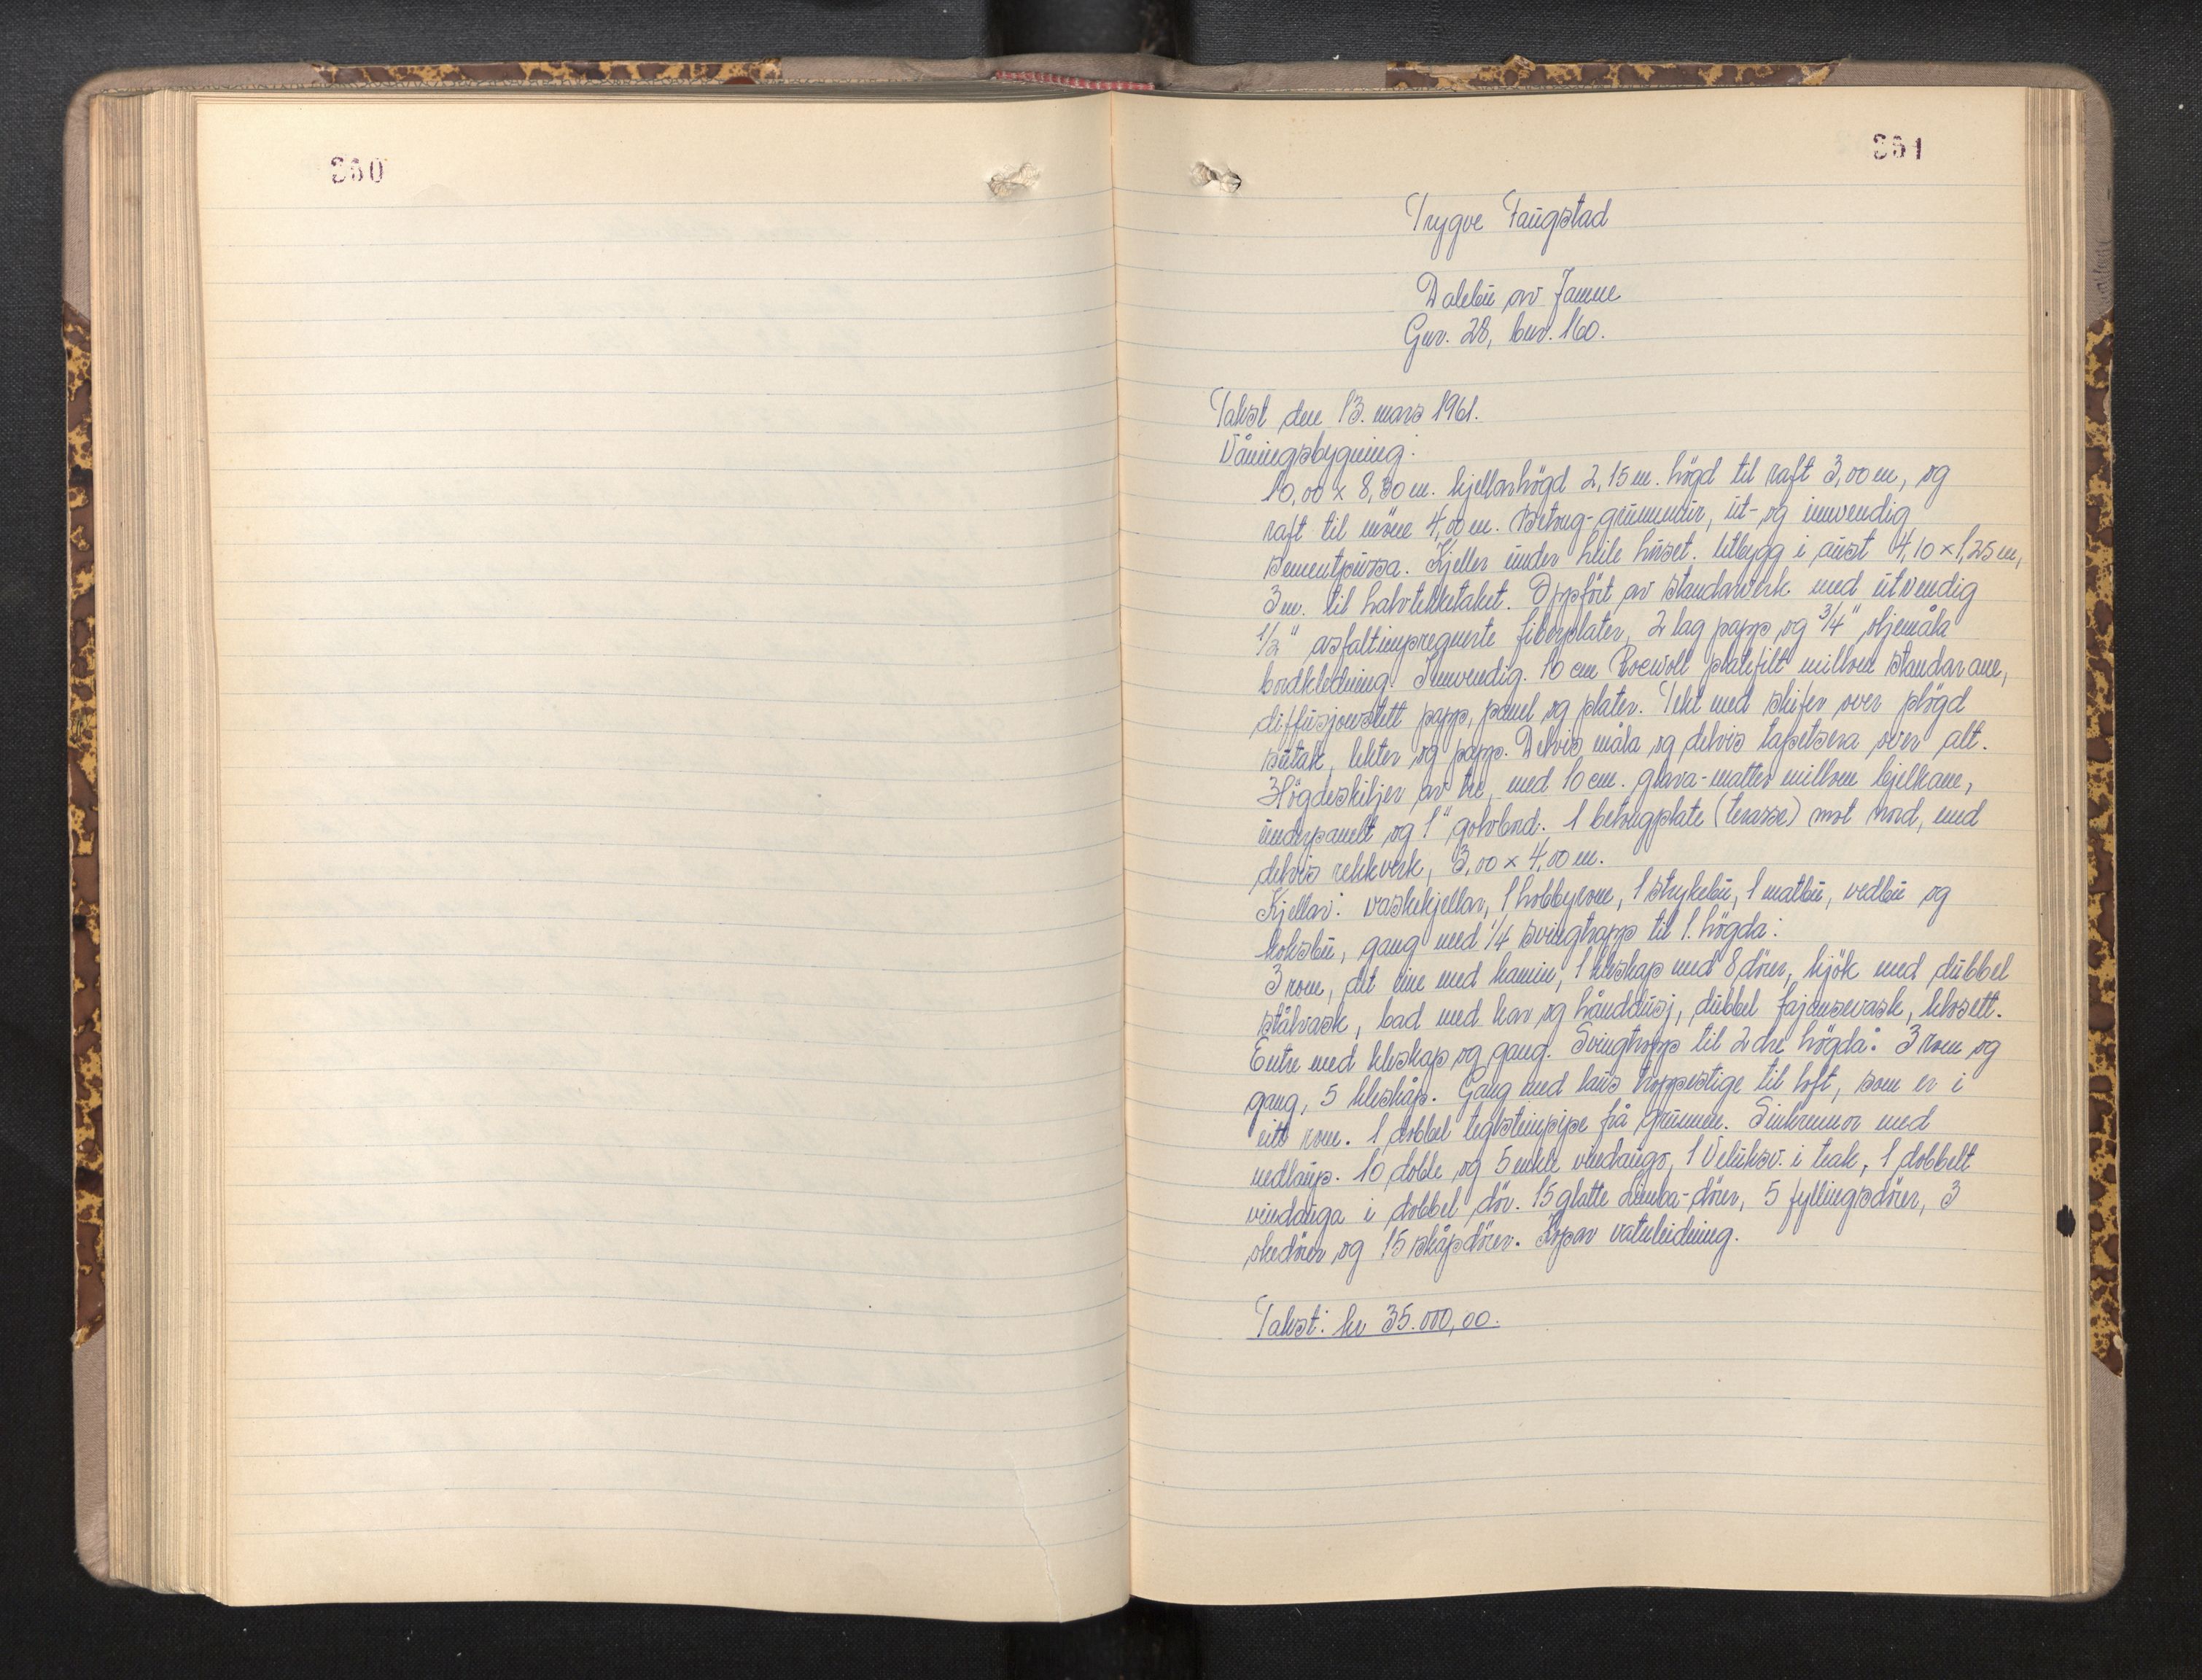 360
361
Trygve Taugstad
Dalebu av Jamne
Gnr. 28, bnr. 160.
Takst den 13. mars 1961.
Våningsbygning:
10,00 x 8,50 m. kjellarhögd 2,15 m. högd til raft 3,00 m, og
raft til möne 4,00 m. Betong-grunnmur, ut- og innvendig
sementpussa. Kjeller under heile huset. Utbygg i aust 4,10 x 1,25 m,
3 m. til halvtekketaket. Oppfört av standarverk med utvendig
1/2" asfaltimpregnerte fiberplater, 2 lag papp og 3/4" oljemåla
bordkledning. Innvendig. 10 cm Rocwoll platefilt millom standarane,
diffusjonstett papp, panel og plater. Tekt med skifer over plögd
sutak, lekter og papp. Delvis måla og delvis tapetsera over alt.
3 Högdeskiljer av tre, med 10 cm. glava-matter millom bjelkane,
underpanelt og 1" golvbord. 1 betongplate (terasse) mot nord, med
delvis rekkverk, 3,00 x 4,00 m.
Kjellar: vaskekjellar, 1 hobbyrom, 1 strykebu, 1 matbu, vedbu og
koksbu, gang med 1/4 svingtrapp til 1. högda:
3 rom, det eine med kamin, 1 kleskap med 8 dörer, kjök med dubbel
stålvask, bad med kar og hånddusj, dubbel fajansevask, klosett.
Entre med kleskap og gang. Svingtrapp til 2dre högda: 3 rom og
gang, 5 kleskåp. Gang med laus trappestige til loft, som er i
eitt rom. 1 dobbel teglsteinpipe frå grunnen. Sinkrennor med
nedlaup. 10 doble og 5 enkle vindaugo, 1 Veluksv. i teak, 1 dobbelt
vindauga i dobbel dör. 15 glatte Limba-dörer, 5 fyllingsdörer, 3
okedörer og 15 skåpdörer. Kopar vatnleidning.
Takst: kr 35.000,00.